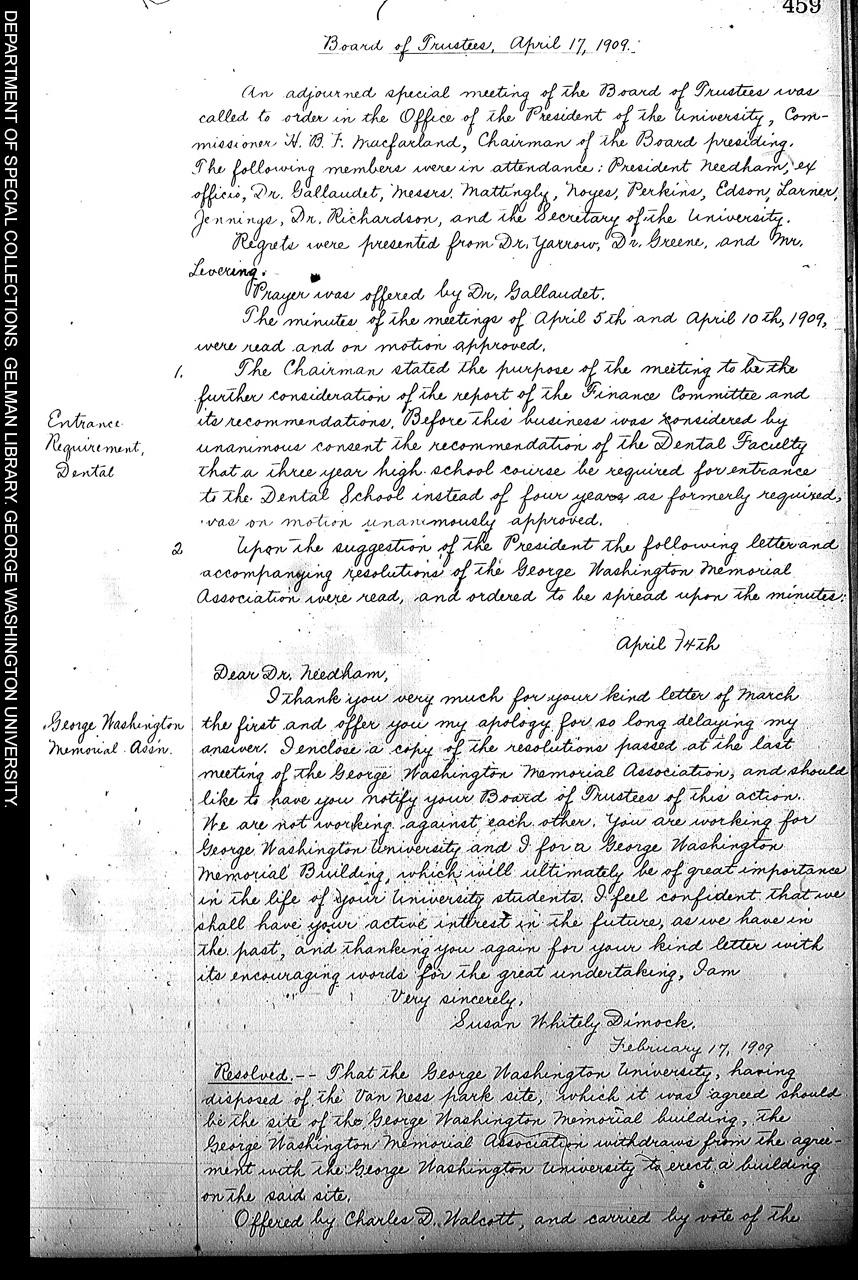 459
Board of Trustees, April 17, 1909.
An adjourned special meeting of the Board of Trustees was
called to order in the Office of the President of the University, Com-
missioner H. B. F. Macfarland, Chairman of the Board presiding.
The following members were in attendance: President Needham, ex
officio, Dr. Gallaudet, Messrs. Mattingly, Noyes, Perkins, Edson, Larner,
Jennings, Dr. Richardson, and the Secretary of the University.
Regrets were presented from Dr. Yarrow, Dr. Greene, and Mr.
Levering.
Prayer was offered by Dr. Gallaudet.
The minutes of the meetings of April 5th and April 10th, 1909,
were read and on motion approved.
1. The Chairman stated the purpose of the meeting to be the
further consideration of the report of the Finance Committee and
its recommendations. Before this business was considered by
unanimous consent the recommendation of the Dental Faculty
that a three year high school course be required for entrance
to the Dental School instead of four years as formerly required,
was on motion unanimously approved.
Entrance
Requirement,
Dental
2. Upon the suggestion of the President the following letter and
accompanying resolutions of the George Washington Memorial
Association were read, and ordered to be spread upon the minutes:
April 14th
Dear Dr. Needham,
I thank you very much for your kind letter of March
the first and offer you my apology for so long delaying my
answer. I enclose a copy of the resolutions passed at the last
meeting of the George Washington Memorial Association, and should
like to have you notify your Board of Trustees of this action.
We are not working against each other. You are working for
George Washington University and I for a George Washington
Memorial Building, which will ultimately be of great importance
in the life of your University students. I feel confident that we
shall have your active interest in the future, as we have in
the past, and thanking you again for your kind letter with
its encouraging words for the great undertaking, I am
Very sincerely,
Susan Whitely Dimock.
George Washington
Memorial Assn.
February 17, 1909
Resolved.-- That the George Washington University, having
disposed of the Van Ness park site, which it was agreed should
be the site of the George Washington Memorial building, the
George Washington Memorial Association withdraws from the agree-
ment with the George Washington University to erect a building
on the said site.
Offered by Charles D. Walcott, and carried by vote of the
DEPARTMENT OF SPECIAL COLLECTIONS. GELMAN LIBRARY. GEORGE WASHINGTON UNIVERSITY.